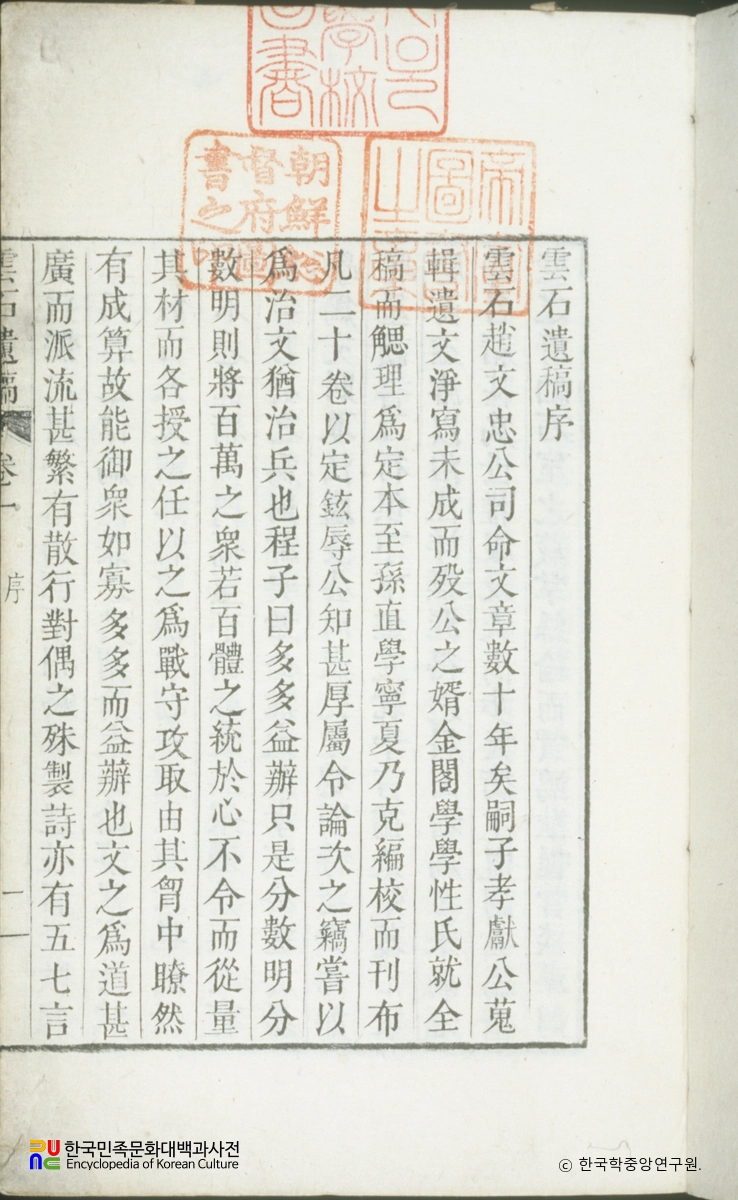 學校
書
朝鮮總
督府圖
書之印
帝室
圖書
之章
雲石遺稿序
雲石趙文忠公司命文章數十年矣嗣子孝獻公蒐
輯遺文淨寫未成而歿公之婿金閣學學性氏就全
稿而䚡理爲定本至孫直學寧夏乃克編校而刊布
凡二十卷以定鉉辱公知甚厚屬令論次之竊嘗以
爲治文猶治兵也程子曰多多益辦只是分數明分
數明則將百萬之衆若百體之統於心不令而從量
其材而各授之任以之爲戰守攻取由其胷中瞭然
有成算故能御衆如寡多多而益辦也文之爲道甚
廣而派流甚繁有散行對偶之殊製詩亦有五七言
雲石遺稿 卷一 序 一
한국민족문화대백과사전
Encyclopedia of Korean Culture
© 한국학중앙연구원.